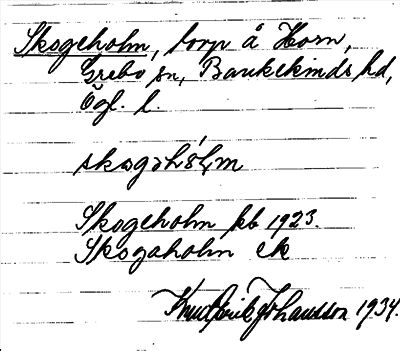 Skogeholm, torp å Horn,
Grebo sn, Bankekinds hd,
Ögl. l.
skogəhól̥m
Skogeholm kb 1923.
Skogaholm ek
Knut Erik Johansson 1934.